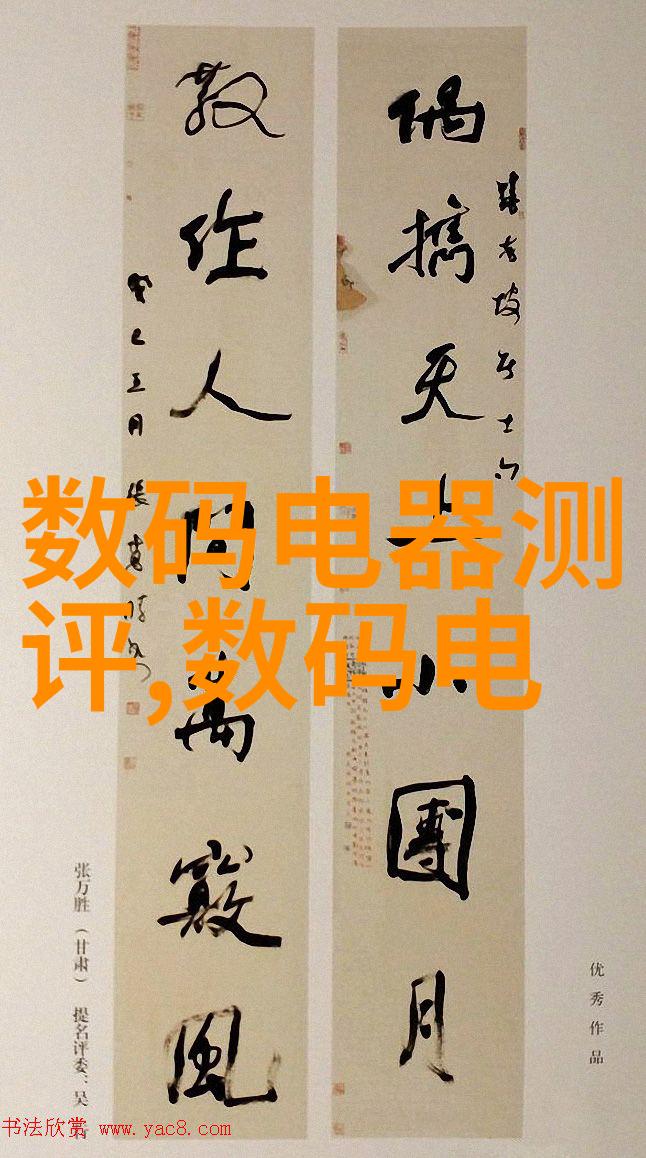 数码电器测
评,数码电
偶携天上小團月
散作人間萬竅風
癸巳五月
优秀作品
张万胜（甘肃） 提名评委：吴
书法欣赏 www.yac8.com